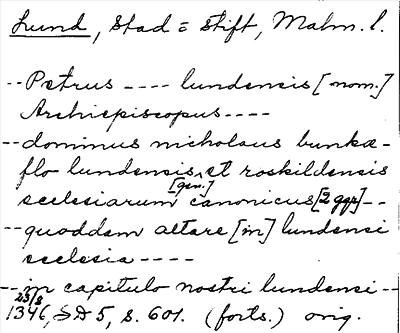 Lund, Stad = Stift, Malm. l.
-- Petrus ---- lundensis [nom.]
Archiepiscopus ----
-- dominus nicholaus bunkæ-
flo lundensis [gen.] et roskildensis
ecclesiarum canonicus [2 ggr] --
-- quoddam altare [in] lundensi
ecclesia ----
-- in capitulo nostri lundensi --
23/8 1346, SD 5, s. 601. (forts.) orig.